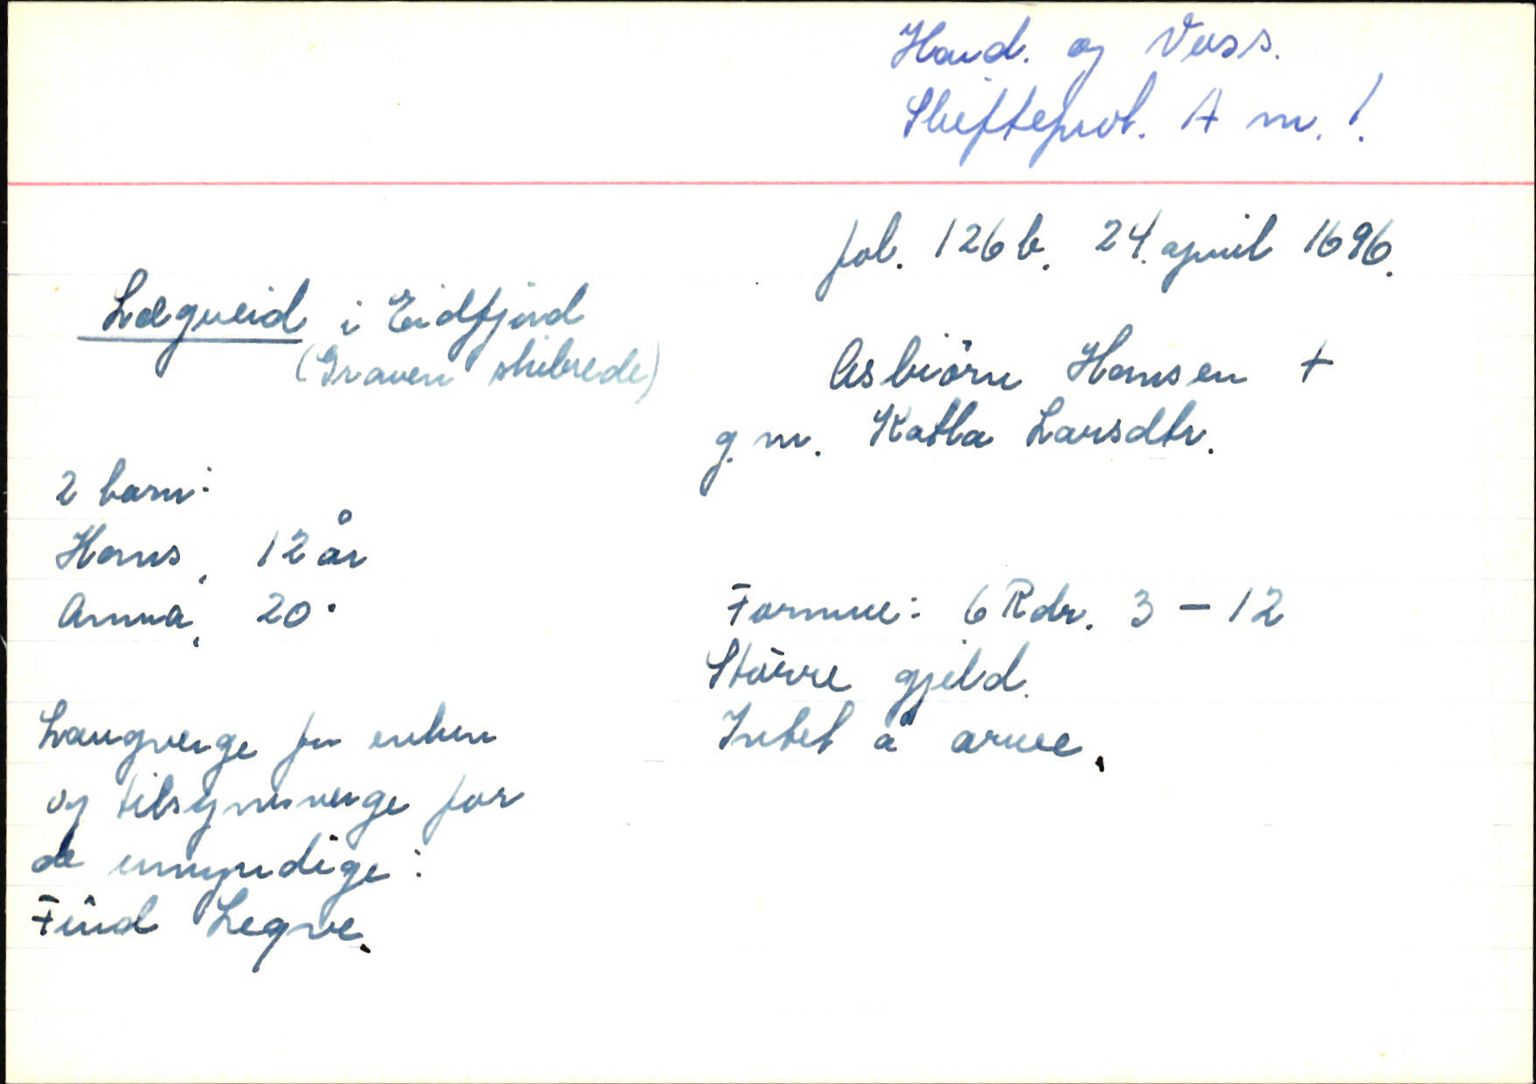 Hard. og Voss.
Skifteprot. A nr. 1.
fol. 126 b. 24. april 1696.
Lægreid i Eidfjord
(Graven skibrede)
Asbiörn Hansen +
g. m. Katla Larsdtr.
2 barn:
Hans, 12 år
Anna, 20 "
Formue: 6 Rdr. 3 - 12
Större gjeld.
Intet å arve.
Laugverge for enken
og tilsynsverge for
de umyndige:
Find Legre.